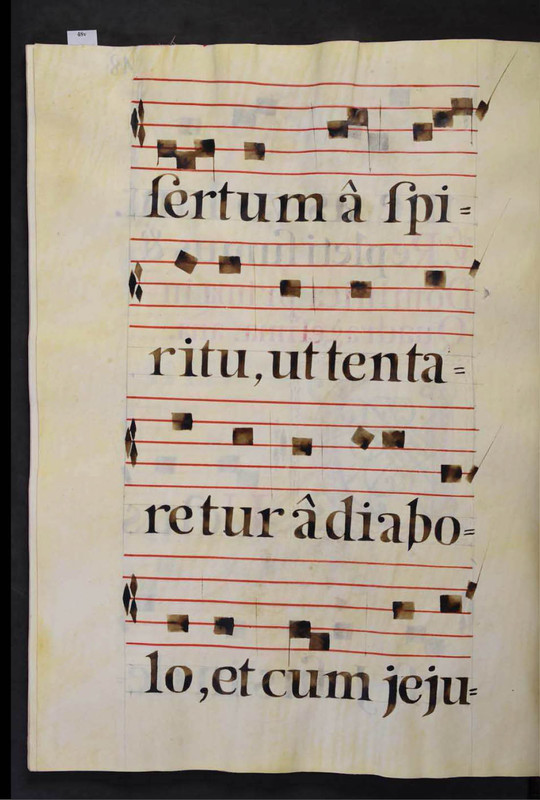 ſertum â ſpi=
ritu, ut tenta=
retur â diabo=
lo, et cum jeju=